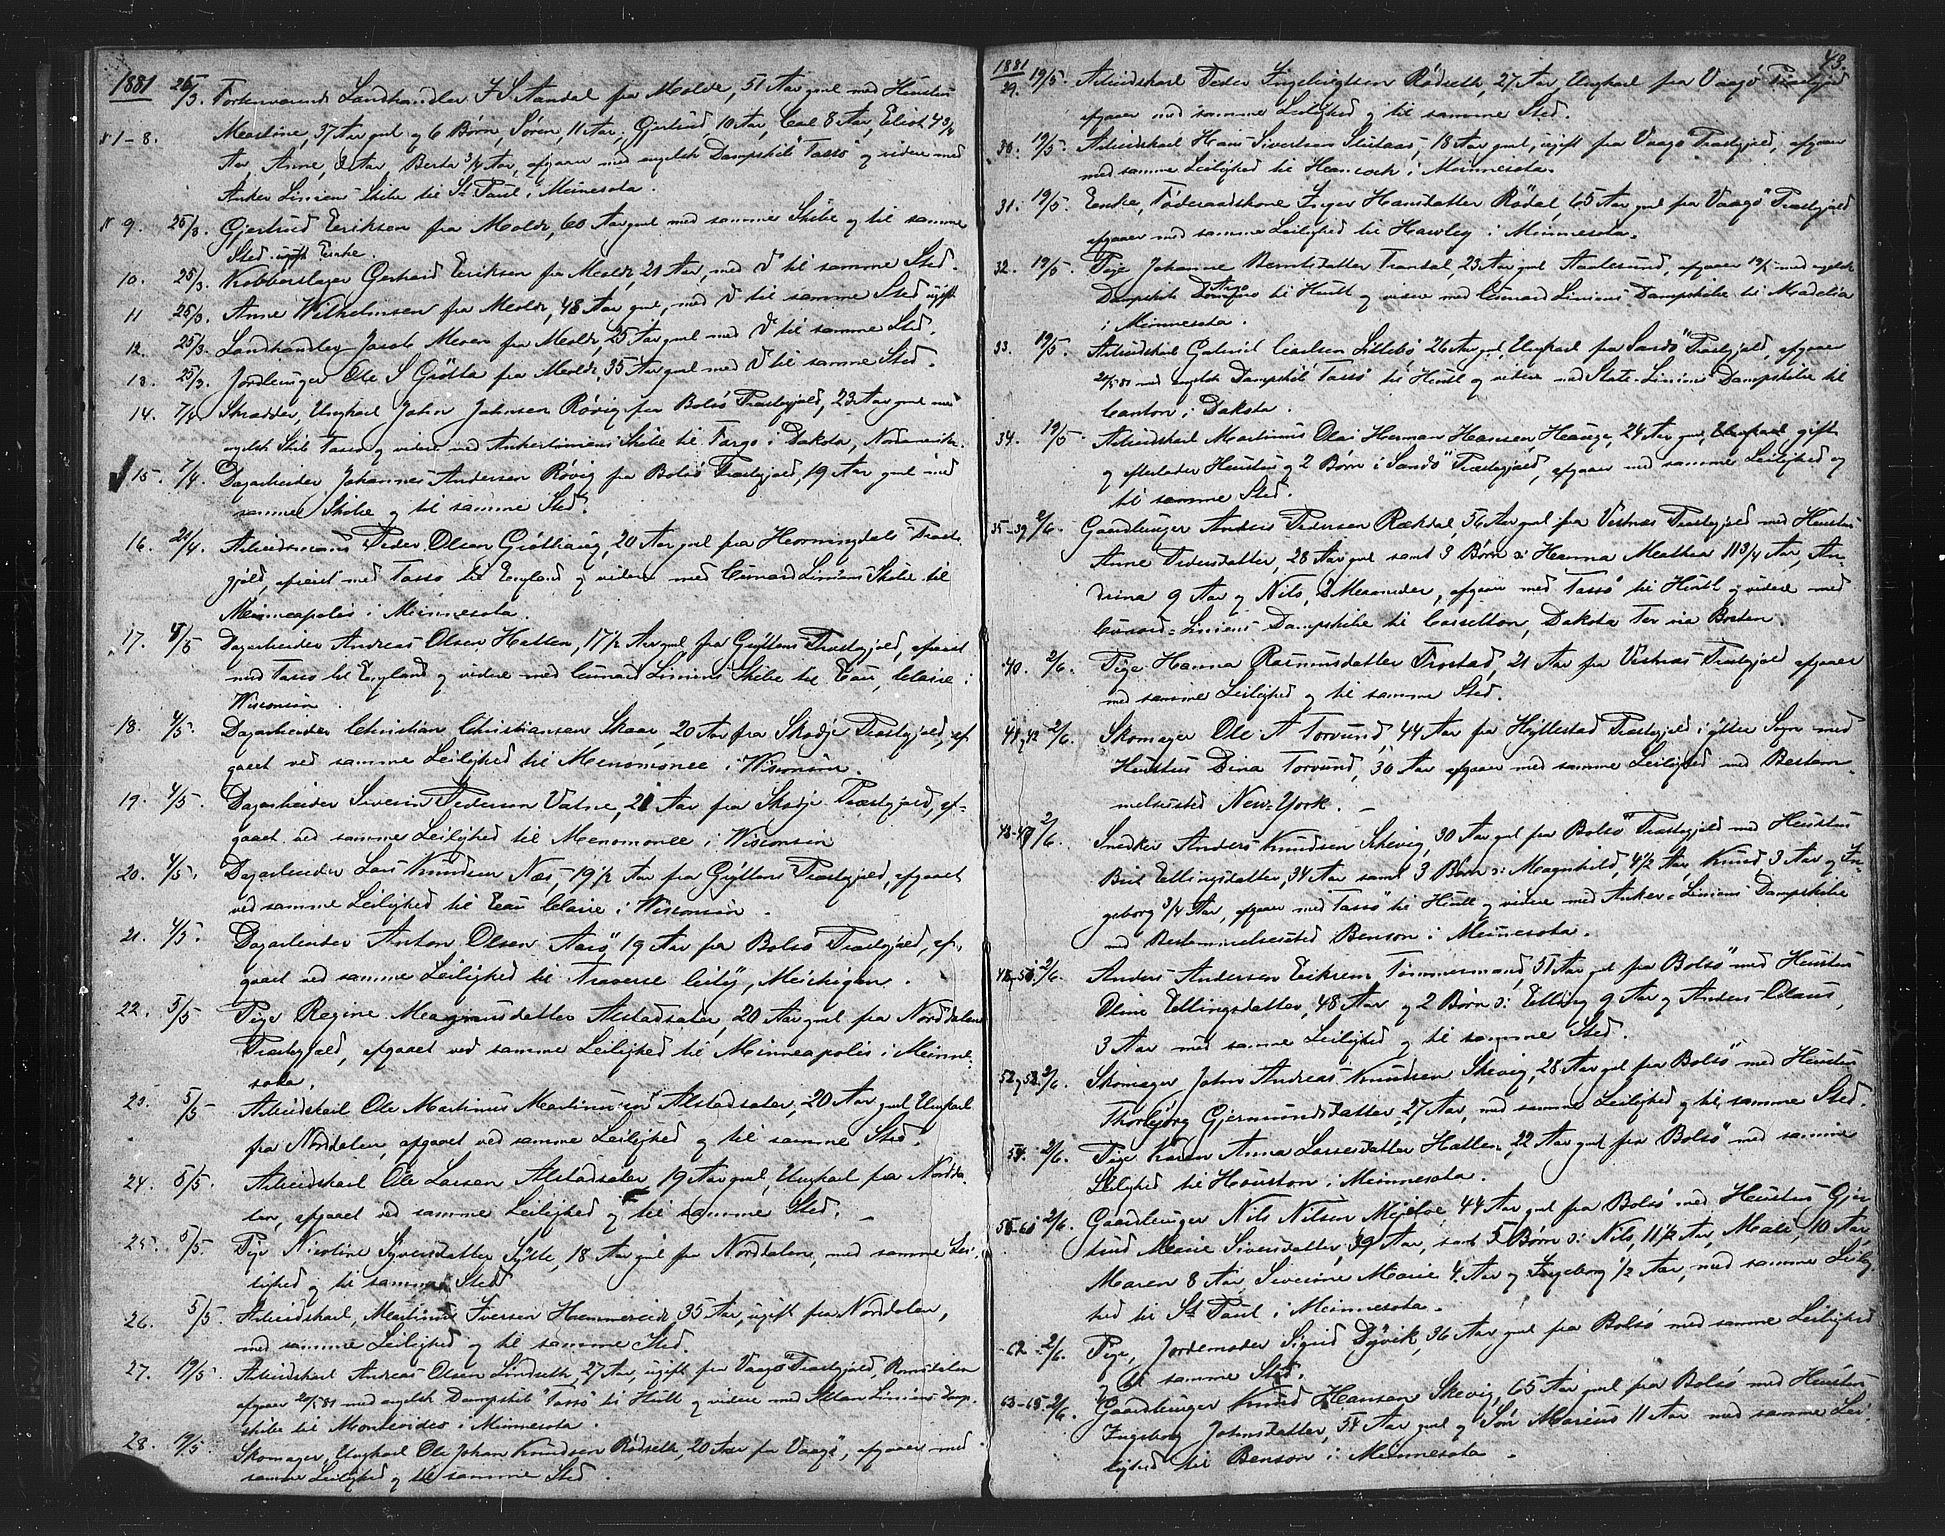 1881
25/3. Forhenværende Landhandler I S Aandal fra Molde, 51 Aar gml med Hustru
1-8. Martine, 37 Aar gml og 6 Børn, Søren, 11 Aar, Gjertrud, 10 Aar, Carl 8 Aar, Elise 4 3/4
Aar, Anne, 2 Aar Berta 3/4 Aar, afgaar med engelsk Dampskib "Tasso" og videre med
Anker Liniens Skibe til St Paul i Minnesota.
9. 25/3. Gjertrud Eriksen fra Molde, 60 Aar gml med samme Skibe og til samme
Sted Enke.
10. 25/3. Kobberslager Gerhard Eriksen fra Molde, 21 Aar, med do til samme Sted.
11 25/3. Anne Wilhelmsen fra Molde, 48 Aar gml, med do til samme Sted ugift
12. 25/3. Landhandler Jacob Meren fra Molde, 25 Aar gml med do til samme Sted.
13. 25/3. Jordbruger Ole S Grötta fra Molde, 35 Aar gml med do til samme Sted.
14. 7/4 Skrædder, Ungkarl John Johnsen Røvig fra Bolsø Præstegjeld, 23 Aar gml med
engelsk Skib Tasso og videre med Ankerliniens Skibe til Fargo i Dakota, Nordamerika.
15. 7/4. Dagarbeider Johannes Andersen Røvig fra Bolsø Præstegjeld, 19 Aar gml med
samme Skibe og til samme Sted.
16. 21/4. Arbeidsmand Peder Olsen Grøthaug, 20 Aar gml fra Horningdals Præste-
gjeld, afreist med Tasso til England og videre med Cunard Liniens Skibe til
Minneapolis i Minnesota.
17. 4/5 Dagarbeider Andreas Olsen Hatten, 17 1/2 Aar gml fra Gryttens Præstegjeld, afreist
med Tasso til England og videre med Cunard Liniens Skibe til Eau, Claire i
Wisconsin.
18. 4/5. Dagarbeider Christian Christiansen Skaar, 20 Aar fra Skodje Præstegjeld, af
gaaet ved samme Leilighed til Menomonee i Wisconsin.
19. 4/5. Dagarbeider Severin Pedersen Vatne, 21 Aar fra Skodje Præstegjeld, af-
gaaet ved samme Leilighed til Menomonee i Wisconsin
20. 4/5. Dagarbeider Lars Knudsen Næs, 19 1/2 Aar fra Gryttens Præstegjeld, afgaaet
ved samme Leilighed til Eau Claire i Wisconsin.
21. 4/5. Dagarbeider Anton Olsen Aarø 19 Aar fra Bolsø Præstegjeld, af-
gaaet ved samme Leilighed til Traverse City, Michigan.
22. 5/5 Pige Regine Magnusdatter Alstadsæter, 20 Aar gml fra Norddalens
Præstegjeld, afgaaet ved samme Leilighed til Minneapolis i Minne-
sota.
23. 5/5 Arbeidskarl Ole Martinus Martinussen Alstadsæter, 20 Aar gml Ungkarl
fra Nordalen, afgaaet ved samme Leilighed og til samme Sted.
24. 5/5. Arbeidskarl Ole Larsen Alstadsæter, 19 Aar gml, Ungkarl fra Nordda-
len, afgaaet ved samme Leilighed og til samme Sted.
25. 5/5. Pige Nicoline Syversdatter Sylte, 18 Aar gml fra Nordalen, med samme Lei-
lighed og til samme Sted
26. 5/5. Arbeidskarl, Martinus Iversen Hammereide 35 Aar, ugift fra Nordalen,
med samme Leilighed og til samme Sted.
27. 19/5. Arbeidskarl Andreas Olsen Lindseth, 27 Aar, ugift, fra Vaagø Præstegjeld, Romsdalen
afgaar 20/5 81 med engelsk Dampskib "Tasso" til Hull og videre med Allan Liniens Damp-
skibe til Montevideo i Minnesota.
28. 19/5 Skomager, Ungkarl Ole Johan Knudsen Rødseth, 20 Aar fra Vaagø, afgaar med
samme Leilighed og til samme Sted.
43.
1881
29. 19/5. Arbeidskarl Peder Ingebrigtsen Rødseth, 27 Aar, Ungkarl fra Vaagø Præstegjeld
afgaar med samme Leilighed og til samme Sted.
30. 19/5. Arbeidskarl Hans Sivertsen 18 Aar gml, ugift fra Vaagø Præstegjeld, afgaar
med samme Leilighed til Hancock i Minnesota.
31. 19/5. Enke, Føderaadskone Inger Hansdatter Rødal, 65 Aar gml fra Vaagø Præstegjeld
afgaar med samme Leilighed til Hawley i Minnesota.
32. 19/5. Pige Johanne Berntsdatter Trandal, 23 Aar gml Aalesund, afgaar 19/5 med engelsk
Dampskib Argo til Hull og videre med Cunard Liniens Dampskibe til Madelia
i Minnesota.
33. 19/5. Arbeidskarl Gabriel Carlsen Lillebø, 26 Aar gml, Ungkarl fra Sandø Præstegjeld, afgaar
20/5 81 med engelsk Dampskib "Tasso" til Hull og videre med State-Liniens Dampskibe til
Canton i Dakota.
34. 19/5 Arbeidskarl Martinus Olai Herman Hansen Hauge, 24 Aar gml, gift
og efterlader Hustru og 2 Børn i Sandø Præstegjeld, afgaar med samme Leilighed og
til samme Sted.
35-39 2/6. Gaardbruger Anders Pedersen Rækdal, 56 Aar gml fra Vestnæs Præstegjeld med Hustru
Anne Pedersdatter, 28 Aar gml samt 3 Børn : Hanna Mathea 11 3/4 Aar, An-
drina 9 Aar og Nils, 2 Maaneder, afgaar med Tasso til Hull og videre med
Cunard-Liniens Dampskibe til Casselton, Dakota Ter via Boston.
40. 2/6. Pige Hanna Rasmusdatter Frostad, 21 Aar fra Vestnæs Præstegjeld afgaar
med samme Leilighed og til samme Sted.
41 og 42 2/6. Skomager Ole A Torvund, 44 Aar fra Hyllestad Præstegjeld i ytre Sogn med
Hustru Dina Torvund, 30 Aar afgaar med samme Leilighed med Bestem-
melsessted New-York.
43-47 2/6. Snedker Anders Knudsen Skevig, 30 Aar gml fra Bolsø Præstegjeld med Hustru
Brit Ellingsdatter, 34 Aar samt 3 Børn : Magnhild, 4 1/2 Aar, Knud, 3 Aar og In-
geborg 3/4 Aar, afgaar med Tasso til Hull og videre med Anker-Liniens Dampskibe
med Bestemmelsessted Benson i Minnesota.
48-51 2/6. Anders Andersen Eriksen Tømmermand, 51 Aar gml fra Bolsø med Hustru
Oline Ellingsdatter, 48 Aar og 2 Børn : Elling 9 Aar og Anders Olaus,
3 Aar med samme Leilighed og til samme Sted.
52 og 53. 2/6. Skomager John Andreas Knudsen Skevig, 28 Aar gml fra Bolsø med Hustru
Thorbjørg Gjermundsdatter, 27 Aar, med samme Leilighed og til samme Sted.
54. 2/6. Pige Karen Anna Larsesdatter Hatlen, 22 Aar gml fra Bolsø med samme
Leilighed til Houston i Minnesota.
55-61 2/6. Gaardbruger Nils Nilsen Mjelve, 44 Aar gml fra Bolsø med Hustru Gjer-
trud Marie Siversdatter, 39 Aar, samt 5 Børn : Nils, 11 1/2 Aar, Mali, 10 Aar,
Maren 8 Aar Severine Marie 4 Aar og Ingeborg 1/2 Aar, med samme Leilig-
hed til St Paul i Minnesota.
62 2/6. Pige, Jordemoder Sigrid Dyvik, 36 Aar gml fra Bolsø med samme Leilighed
og til samme Sted.
63-65 2/6. Gaardbruger Knud Hansen Skevig, 65 Aar gml fra Bolsø med Hustru
Ingeborg Johnsdatter, 51 Aar gml og Søn Marius 11 Aar med samme Lei-
lighed til Benson i Minnesota.